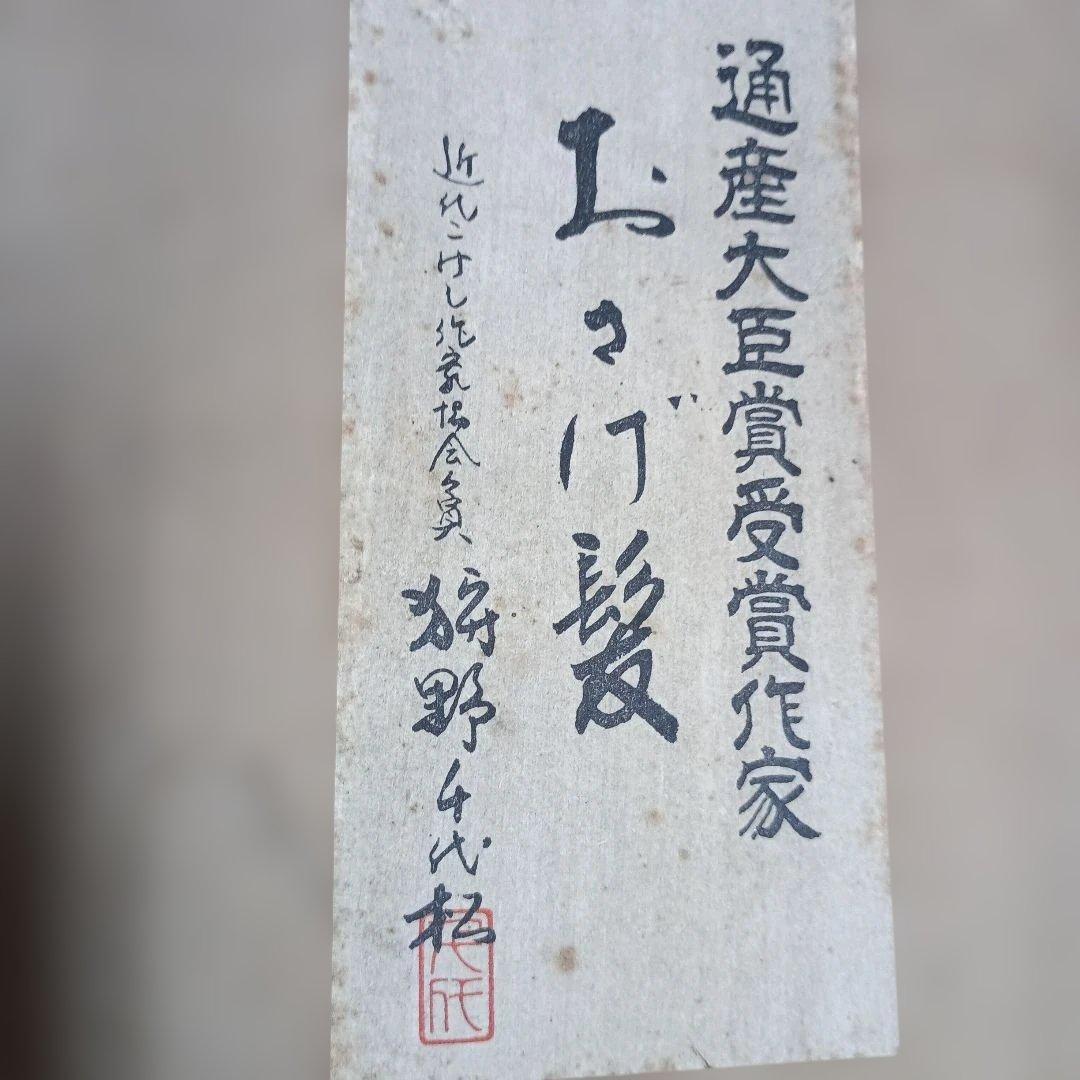 通産大臣賞受賞作家
おさげ髪
近代こけし作家協会員
狩野千代松